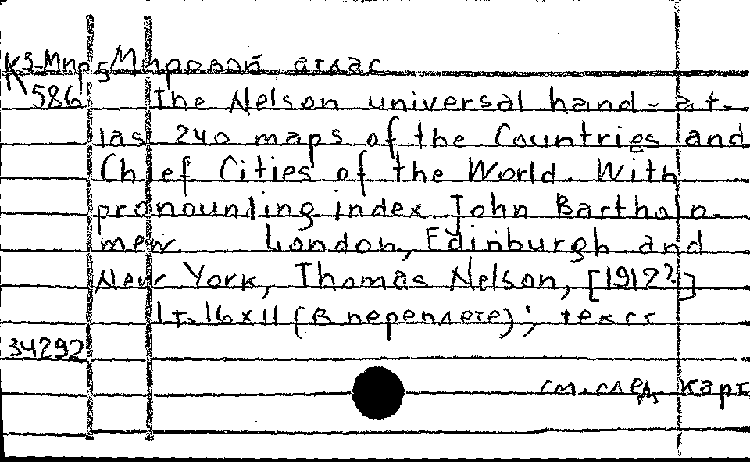 К3-Мир5 Мировой атлас
586 The Nelson universal hand-at-
las 240 maps of the Countries and
Chief Cities of the World. With
pronounting index John Bartholo-
mew London, Edinburgh and
New York, Thomas Nelson, [1912?]
1т. 16x11 (в переплете); текст
34292
см. след. карт